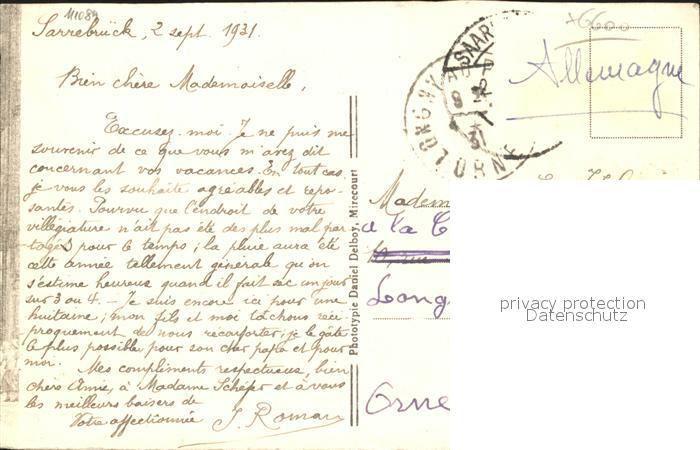 111089
Sarrebrück, 2 sept. 1931.
Bien chère Mademoiselle,
Excusez-moi. Je ne puis me
souvenir de ce que vous m'avez dit
concernant vos vacances. En tout cas
je vous les souhaite agréables et repo-
santes. Pourvu que l'endroit de votre
villégiature n'ait pas été des plus mal par-
tagés pour le temps; la pluie aura été
cette année tellement générale qu'on
s'estime heureux quand il fait sec un jour
sur 3 ou 4. – Je suis encore ici pour une
huitaine; mon fils et moi tâchons réci-
proquement de nous réconforter; je le gâte
le plus possible pour son cher papa et pour
moi.
Mes compliments respectueux, bien
chère Amie, à Madame Schéfer et à vous
les meilleurs baisers de
Votre affectionnée J. Roman
Phototypie Daniel Delboy, Mirecourt
6600
Allemagne
SAAR
LONGNY
ORNE
Madem
à la C
rue
Long
Orne
privacy protection
Datenschutz